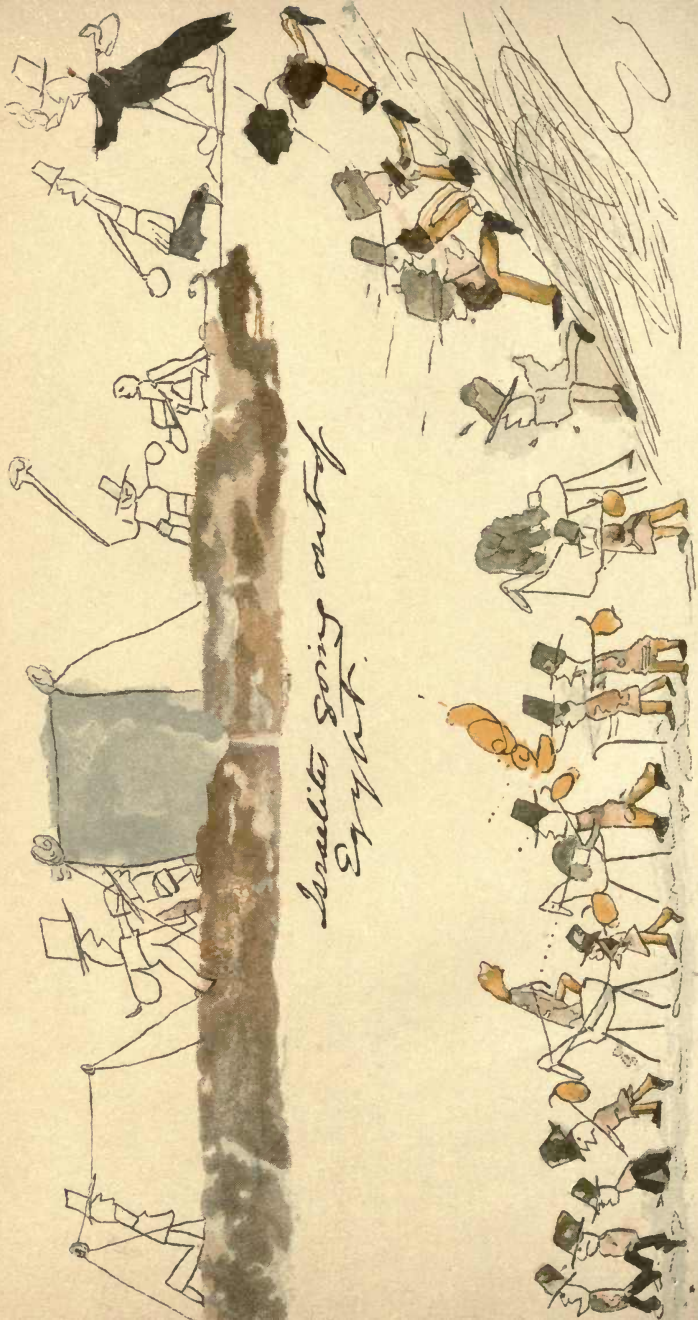 Israelites going out of
Egypt.